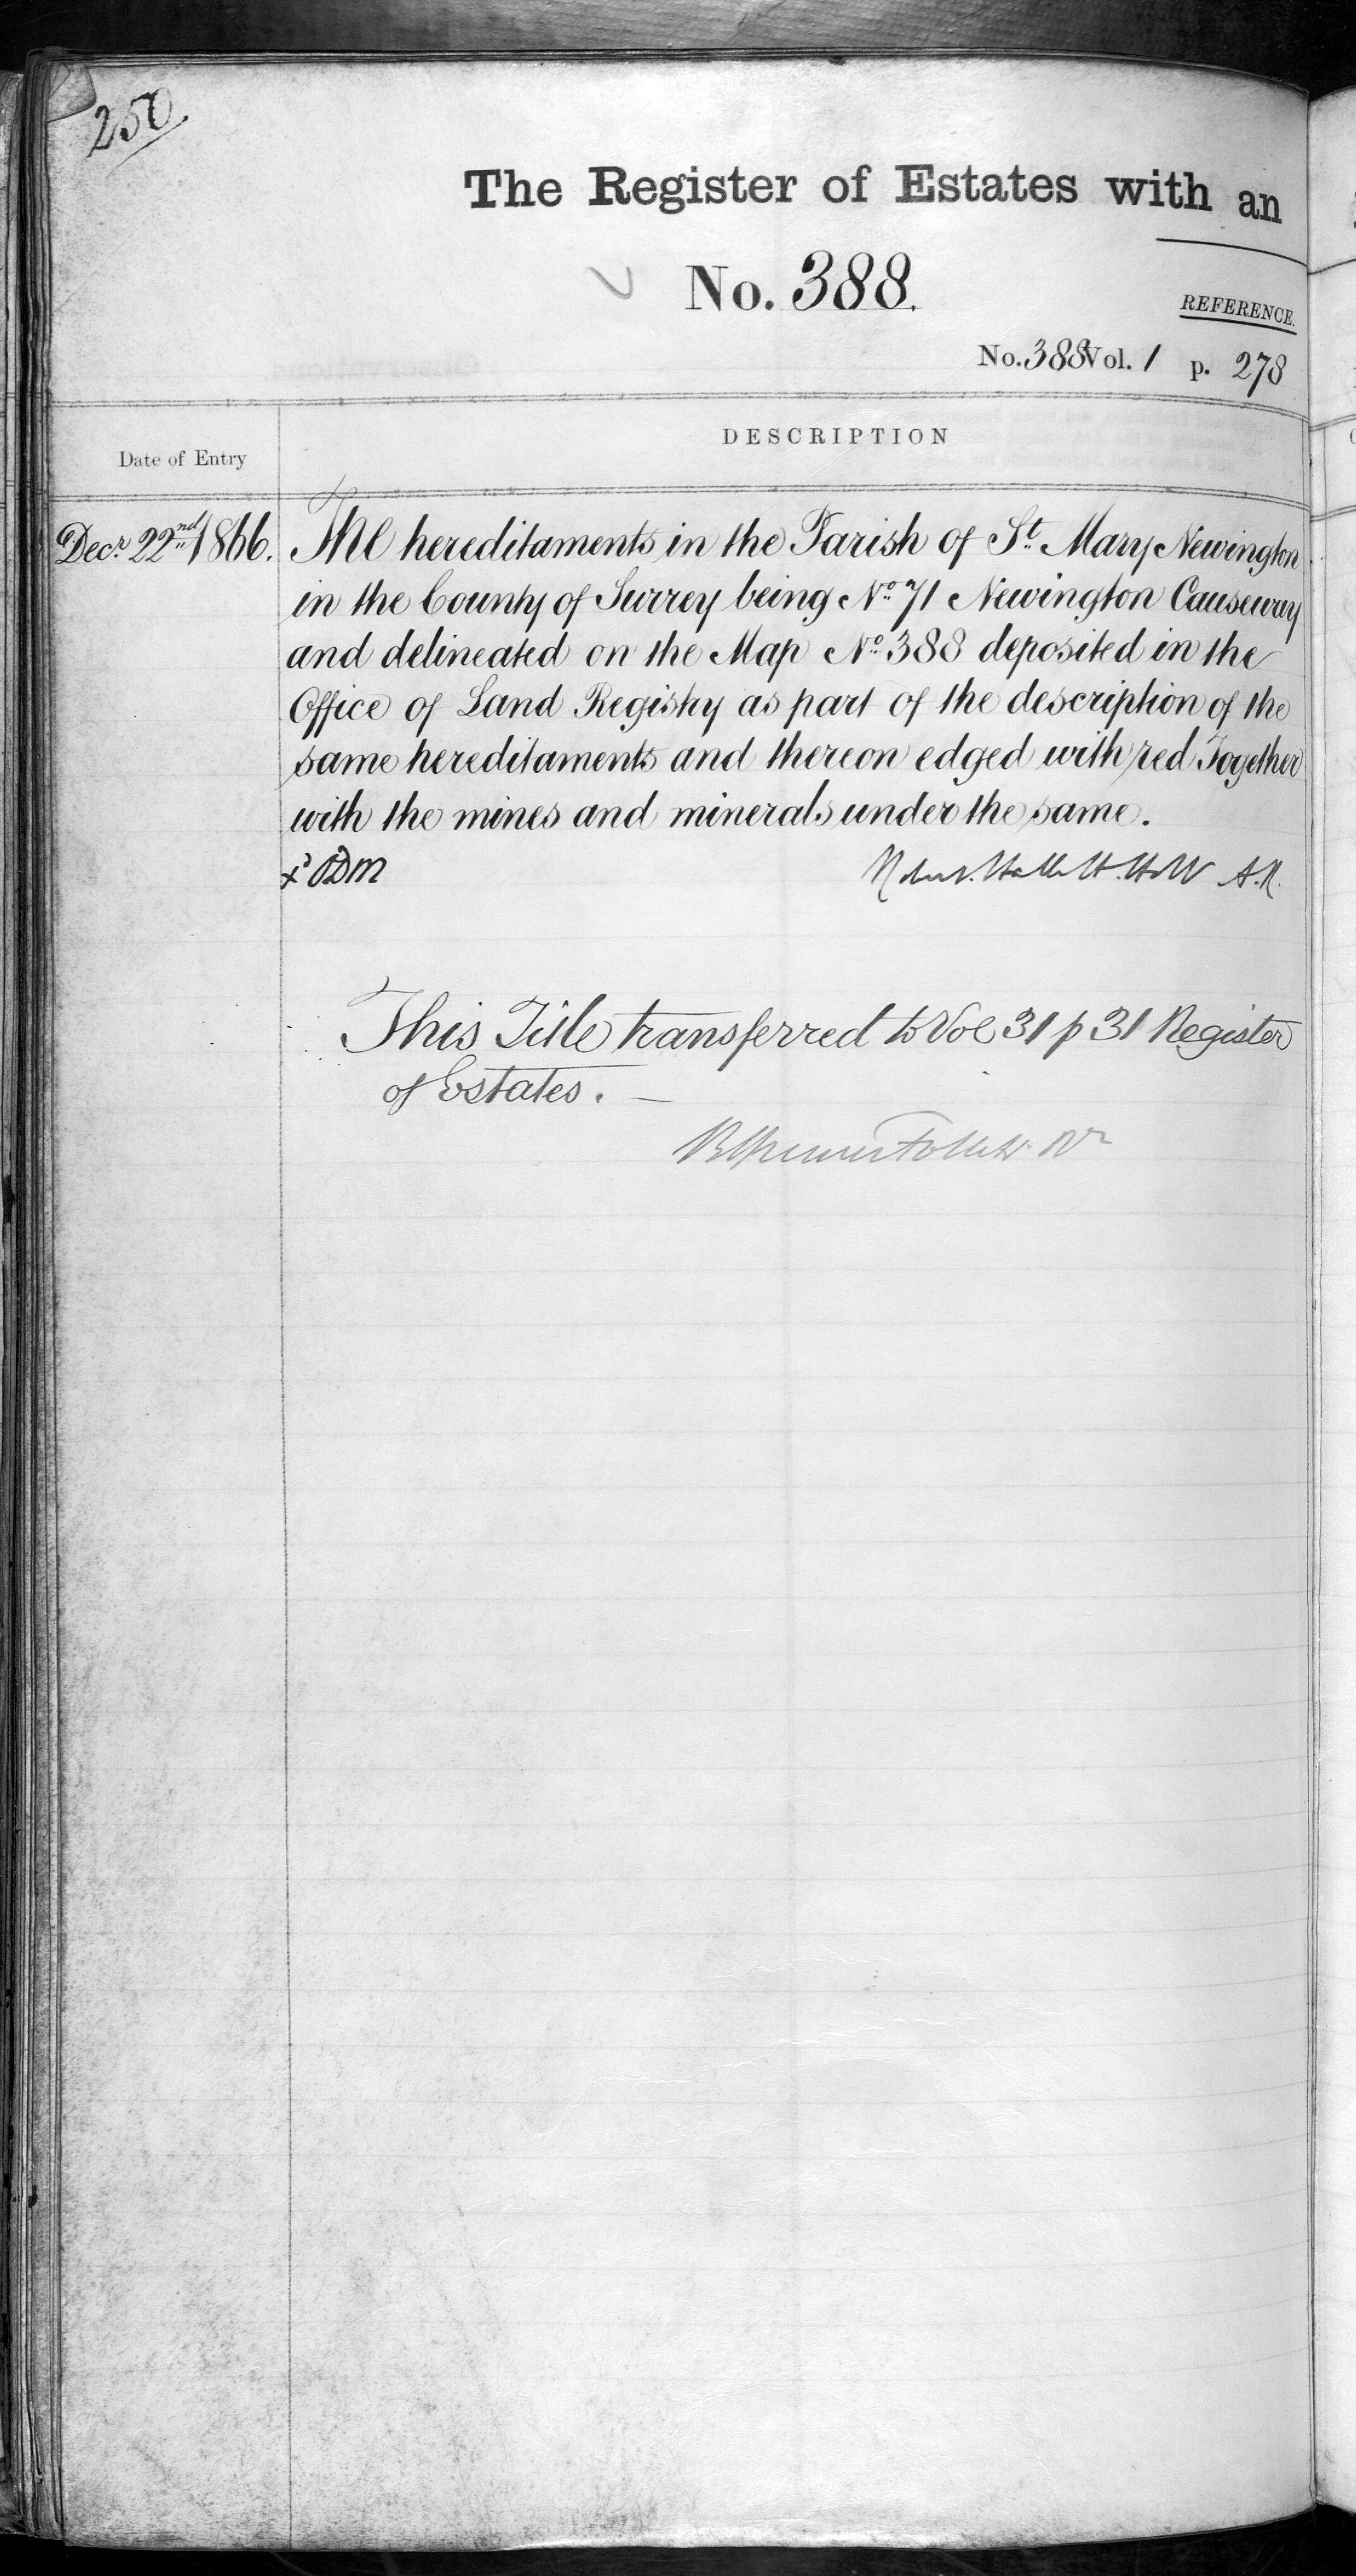 250.
The Register of Estates with an
No. 388.
REFERENCE.
No. 388 Vol. 1 p. 278
DESCRIPTION
Date of Entry
Decr. 22nd 1866.
The hereditaments in the Parish of St. Mary Newington
in the County of Surrey being No. 71 Newington Causeway
and delineated on the Map No. 388 deposited in the
Office of Land Registry as part of the description of the
same hereditaments and thereon edged with red Together
with the mines and minerals under the same.
A.R.
This Title transferred to Vol 31 p 31 Register
of Estates. —